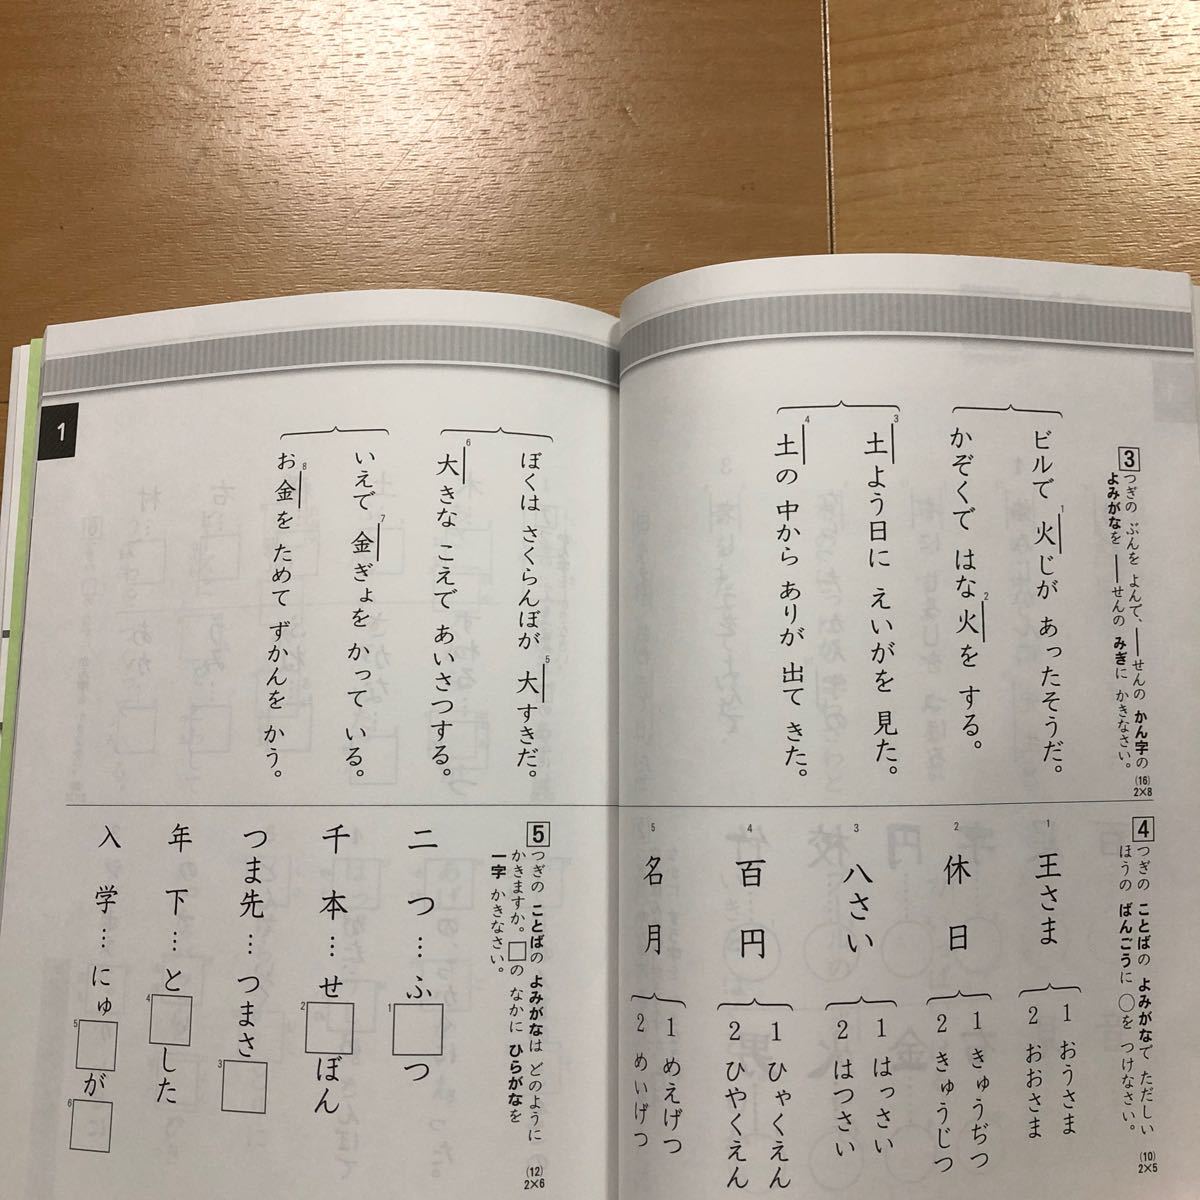 3 つぎの ぶんを よんで、――せんの かん字の
よみがなを ――せんの みぎに かきなさい。
(16)
2×8
ビルで 火じが あったそうだ。
1
かぞくで はな火を する。
2
土よう日に えいがを 見た。
3
土の 中から ありが 出て きた。
4
ぼくは さくらんぼが 大すきだ。
5
大きな こえで あいさつする。
6
いえで 金ぎょを かって いる。
7
お金を ためて ずかんを かう。
8
1
4 つぎの ことばの よみがなで ただしい
ほうの ばんごうに ○を つけなさい。
(10)
2×5
1 王さま
1 おうさま
2 おおさま
2 休日
1 きゅうぢつ
2 きゅうじつ
3 八さい
1 はっさい
2 はつさい
4 百円
1 ひゃくえん
2 ひやくえん
5 名月
1 めえげつ
2 めいげつ
5 つぎの ことばの よみがなは どのように
かきますか。□の なかに ひらがなを
一字 かきなさい。
(12)
2×6
二つ…ふ□つ
1
千本…せ□ぼん
2
つま先…つまさ□
3
年下…と□した
4
入学…にゅ□が□
5
6